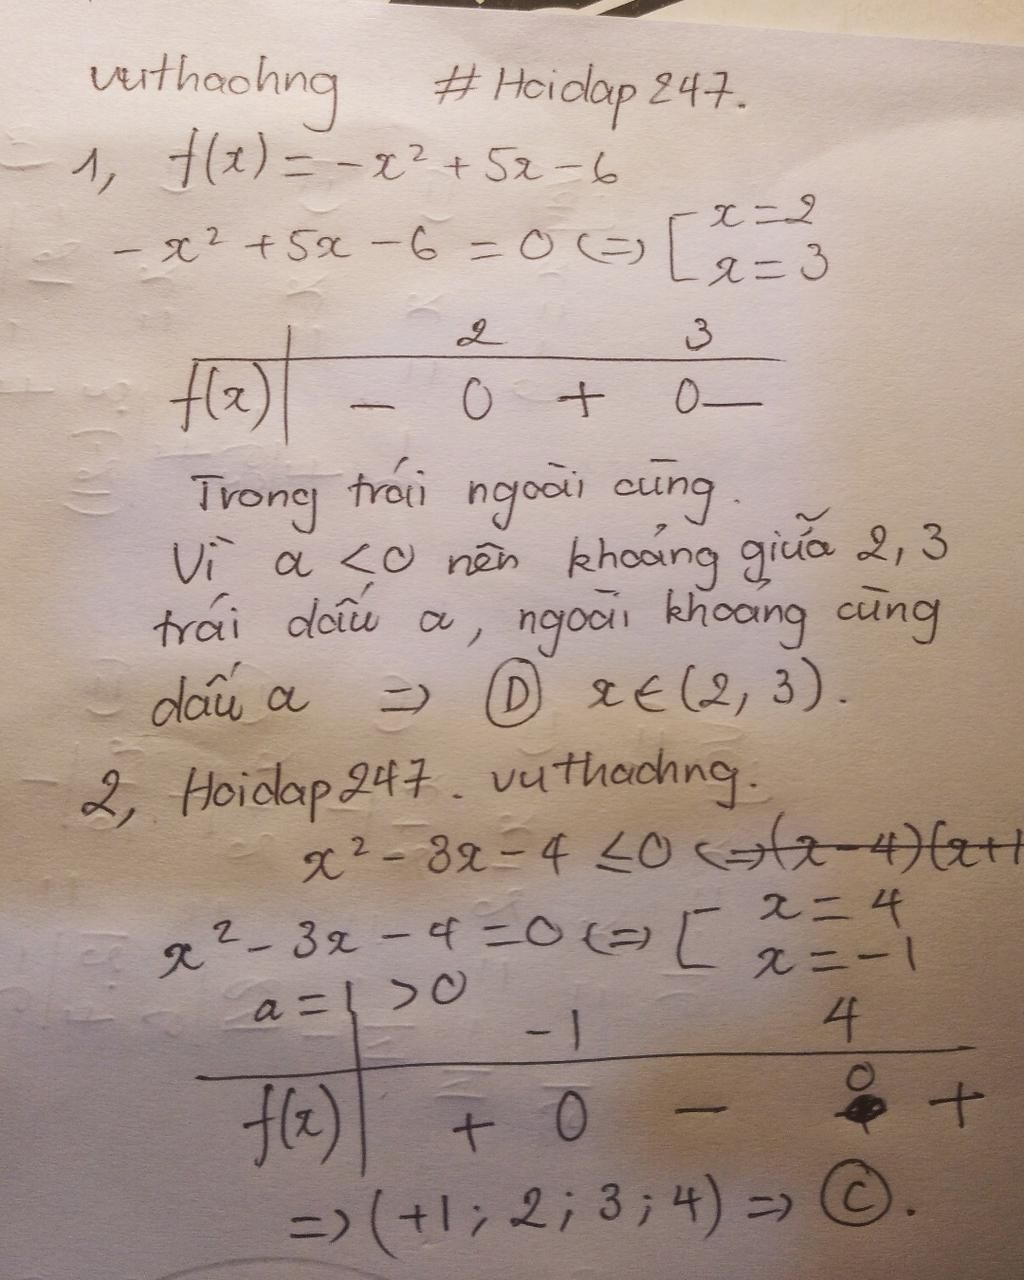 vuthaohng #Hoidap247.
1, f(x) = -x² + 5x - 6
-x² + 5x - 6 = 0 <=> [ x = 2
x = 3
2 3
f(x) - 0 + 0 -
Trong trái ngoài cùng.
Vì a < 0 nên khoảng giữa 2, 3
trái dấu a, ngoài khoảng cùng
dấu a => D x ∈ (2, 3).
2, Hoidap247. vuthaohng.
x² - 3x - 4 ≤ 0 <=> (x - 4)(x+1
x² - 3x - 4 = 0 <=> [ x = 4
x = -1
a = 1 > 0
-1 4
f(x) + 0 - 0 +
=> (+1; 2; 3; 4) => C.